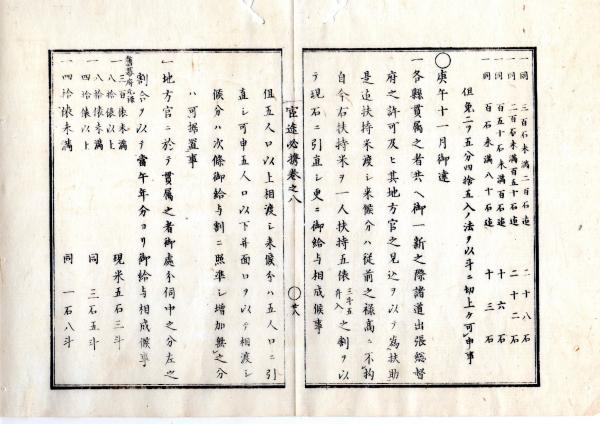 一同 三百石未満二百石迄 二十八石
一同 二百石未満百五十石迄 二十二石
一同 百五十石未満百石迄 十六石
一同 百石未満八十石迄 十三石
但第二ヲ五分四捨五入ノ法ヲ以斗ニ切上ケ可申事
〇庚午十一月御達
一各縣貫属之者共ヘ御一新之際諸道出張総督
府之許可及ヒ其地方官之見込ヲ以テ為扶助
是迠扶持米渡シ来候分ハ従前之禄高ニ不拘
自今右扶持米ヲ一人扶持五俵三斗五升入之割ヲ以
テ現石ニ引直シ更ニ御給与相成候事
官途必携巻之八
〇廿八
但五人口以上相渡シ来候分ハ五人口ニ引
直シ可申五人口以下并面口ヲ以テ相渡シ
候分ハ次條御給与割ニ照準シ増加無之分
ハ可据置事
一地方官ニ於テ貫属之者御處分伺中之分左之
割合ヲ以テ當午年分ヨリ御給与相成候事
舊幕府元高
一三百俵未満
八拾俵以上 現米五石三斗
一八拾俵未満
四拾俵以上 同 三石五斗
一四拾俵未満 同 一石八斗